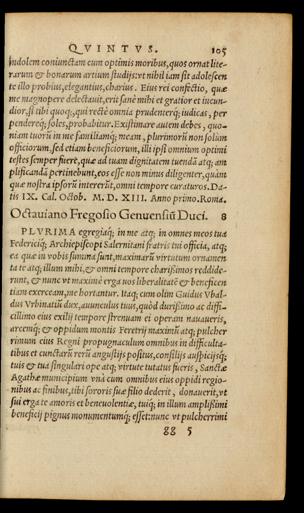 QVINTVS. 105
indolem coniunctam cum optimis moribus, quos ornat lite-
rarum & bonarum artium studijs: vt nihil iam sit adolescen
te illo probius, elegantius, charius. Eius rei confectio, quæ
me magnopere delectauit, erit sanè mihi et gratior et iucun-
dior, si tibi quoq;, qui rectè omnia prudenterq; iudicas, per
pendereq; soles, probabitur. Existimare autem debes, quo-
niam tuorū in me familiamq; meam, plurimorū non solùm
officiorum. sed etiam beneficiorum, illi ipsi omnium optimi
testes semper fuere, quæ ad tuam dignitatem tuendā atq; am
plificandā pertinebunt, eos esse non minus diligenter, quàm
quæ nostra ipsorū intererūt, omni tempore curaturos. Da-
tis IX. Cal. Octob. M. D. XIII. Anno primo. Roma.
Octauiano Fregosio Genuensiū Duci. 8
PLVRIMA egregiaq; in me atq; in omnes meos tua
Federiciq; Archiepiscopi Salernitani fratris tui officia, atq;
ea quæ in vobis summa sunt, maximarū virtutum ornamen
ta te atq; illum mihi, & omni tempore charissimos reddide-
runt, & nunc vt maximè erga uos liberalitatē & beneficen
tiam exerceam, me hortantur. Itaq; cum olim Guidus Vbal-
dus Vrbinatiū dux, auunculus tuus, quòd durissimo ac diffi-
cillimo eius exilij tempore strenuam ei operam nauaueris,
arcemq; & oppidum montis Feretrij maximū atq; pulcher
rimum eius Regni propugnaculum omnibus in difficulta-
tibus et cunctarū rerū angustijs positus, consilijs auspicijsq;
tuis & tua singulari ope atq; virtute tutatus fueris, Sanctæ
Agathæ municipium vnà cum omnibus eius oppidi regio-
nibus ac finibus, tibi sororis suæ filio dederit, donauerit, vt
sui erga te amoris et beneuolentiæ, tuiq; in illum amplissimi
beneficij pignus monumentumq; esset: nunc vt pulcherrimi
gg 5